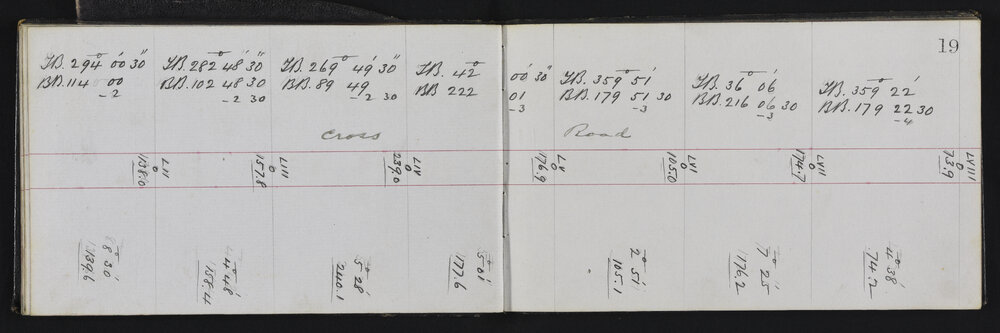 19
F.B. 294° 00' 30"
B.B. 114 00
-2
F.B. 282° 48' 30"
B.B. 102 48 30
-2 30
F.B. 269° 49' 30"
B.B. 89 49
-2 30
F.B. 42° 00' 30"
B.B. 222 01
-3
F.B. 359° 51'
B.B. 179 51 30
-3
F.B. 36° 06'
B.B. 216 06 30
-3
F.B. 359° 22'
B.B. 179 22 30
-4
Cross Road
LII
138.0
LIII
157.8
LV
239.0
LV
176.9
LVI
105.0
LVII
174.7
LVIII
73.9
8° 30'
139.6
4° 48'
158.4
5° 28'
240.1
5° 01'
177.6
2° 51'
105.1
7° 25'
176.2
4° 38'
74.2